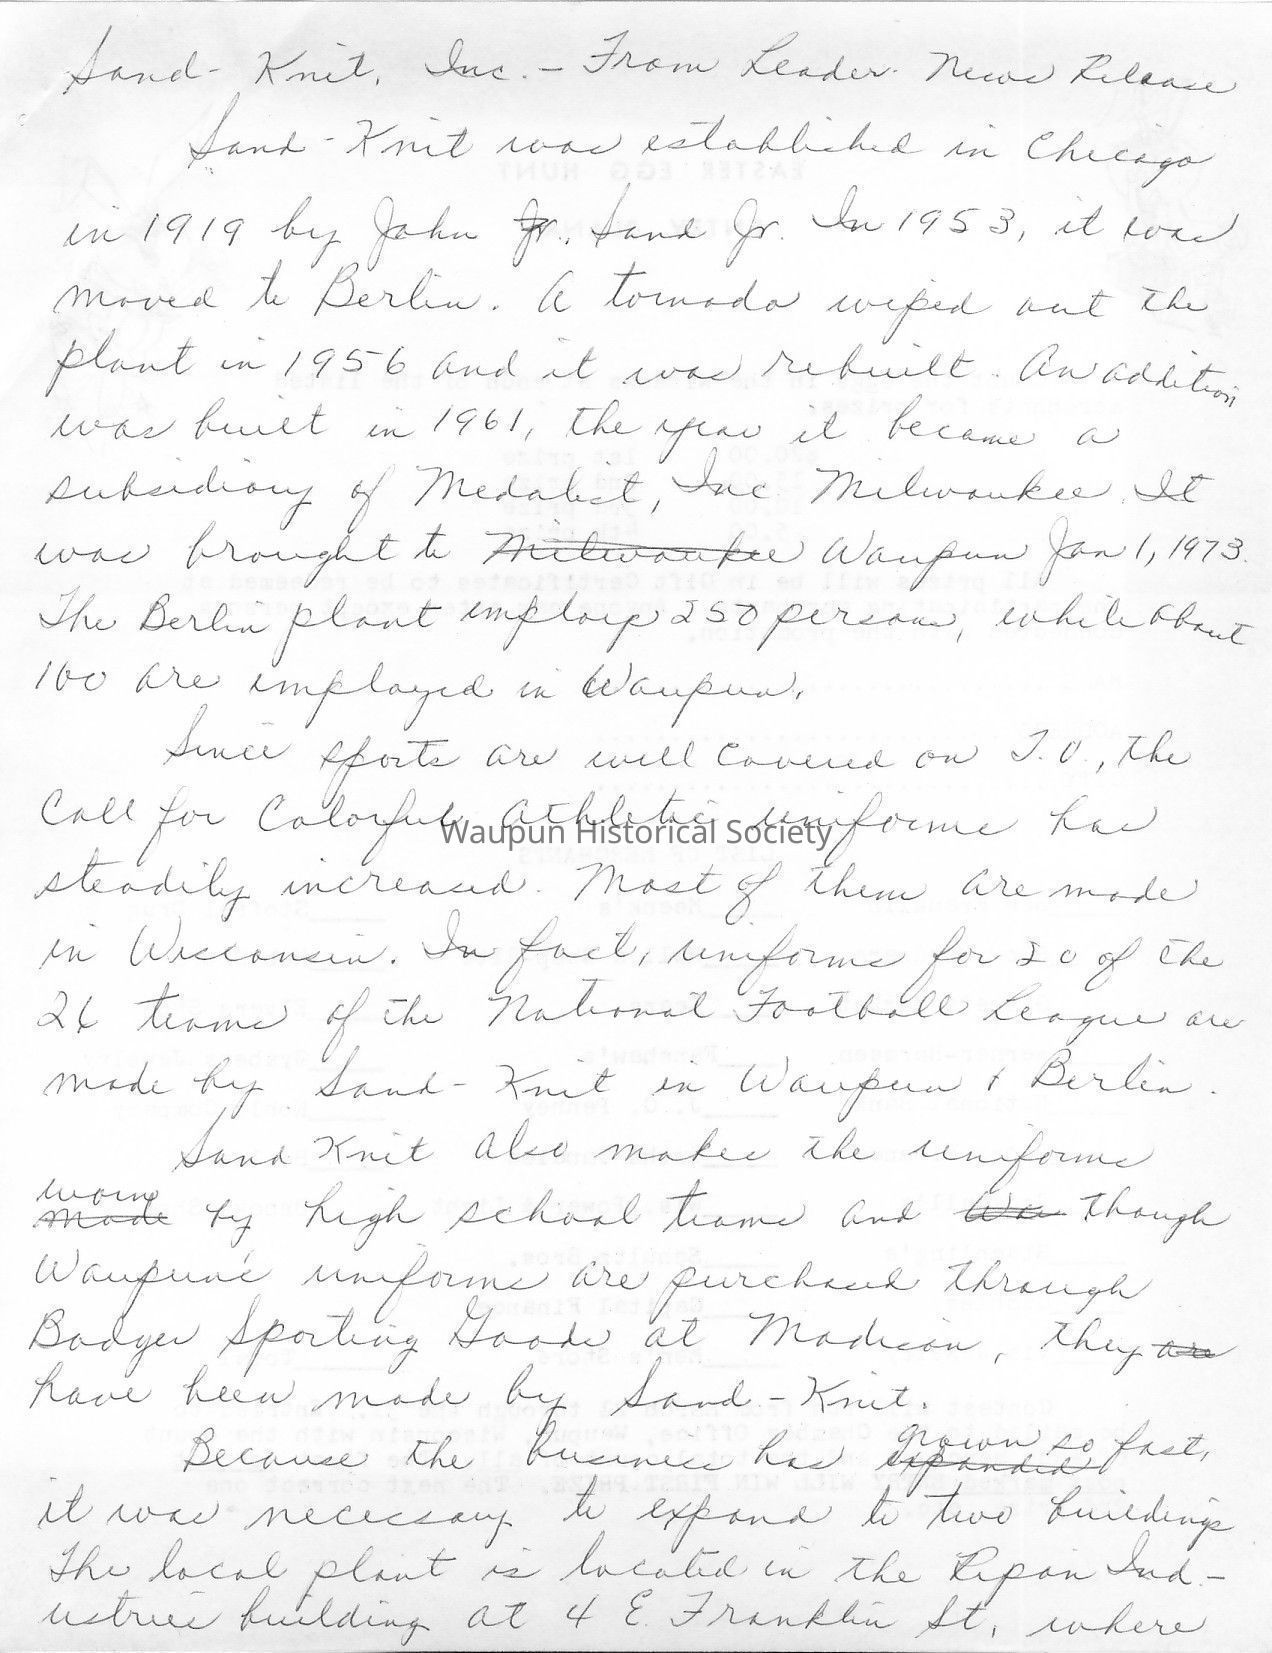 Sand-Knit, Inc. - From Leader News Release
Sand-Knit was established in Chicago
in 1919 by John Jr. Sand Jr. In 1953, it was
moved to Berlin. A tornado wiped out the
plant in 1956 and it was rebuilt. An addition
was built in 1961, the year it became a
subsidiary of Medalist, Inc. Milwaukee. It
was brought to Milwaukee Waupun Jan 1, 1973.
The Berlin plant employs 250 persons, while about
100 are employed in Waupun.
Since sports are well covered on T.V., the
call for colorful athletic uniforms has
Waupun Historical Society
steadily increased. Most of them are made
in Wisconsin. In fact, uniforms for 20 of the
26 teams of the National Football League are
made by Sand-Knit in Waupun & Berlin.
Sand Knit also makes the uniforms
worn
made by high school teams and Wau though
Waupun's uniforms are purchased through
Badger Sporting Goods at Madison, they are
have been made by Sand-Knit.
Because the business has expanded grown so fast,
it was necessary to expand to two buildings
The local plant is located in the Ripon Ind-
ustries building at 4 E. Franklin St., where